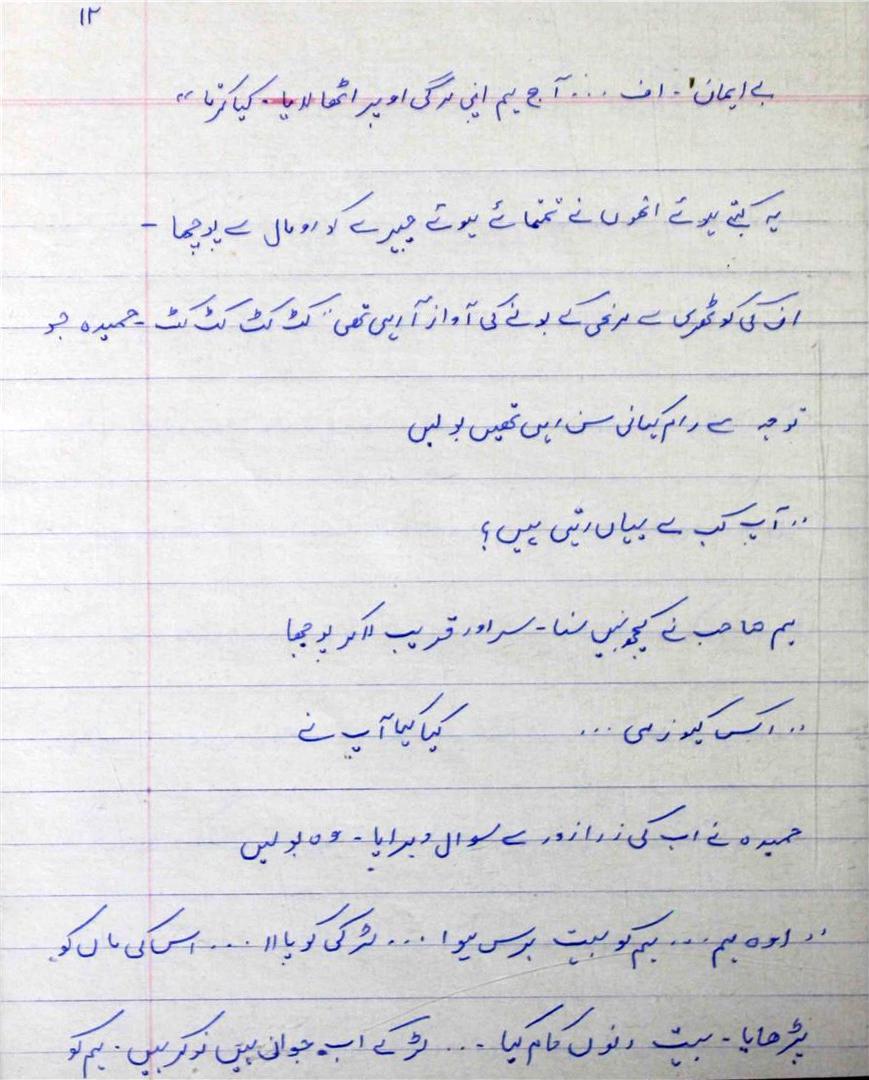 ۱۲
بے ایمان'۔ اف ... آج ہم اپنی مرگی اوپر اٹھا لایا۔ کیا کرتا"
یہ کہتے ہوئے انھوں نے تمتمائے ہوئے چہرے کو رومال سے پوچھا ۔
ان کی کوٹھری سے مرغی کے بولنے کی آواز آرہی تھی: کٹ کٹ کٹ کٹ ۔ حمیدہ جو
توجہ سے رام کہانی سن رہی تھیں بولیں
"آپ کب سے یہاں رہتی ہیں؟
میم صاحب نے کچھ نہیں سنا۔ سر اور قریب لاکر پوچھا
"اکس کیوزمی ... کیا کہا آپ نے
حمیدہ نے اب کی ذرا زور سے سوال دہرایا۔ وہ بولیں
"اوہ ہم ... ہم کو بہت برس ہوا ... لڑکی کو پالا ... اس کی ماں کو
پڑھایا۔ بہت دنوں کام کیا ... لڑکے اب جوان ہیں نوکر ہیں۔ ہم کو